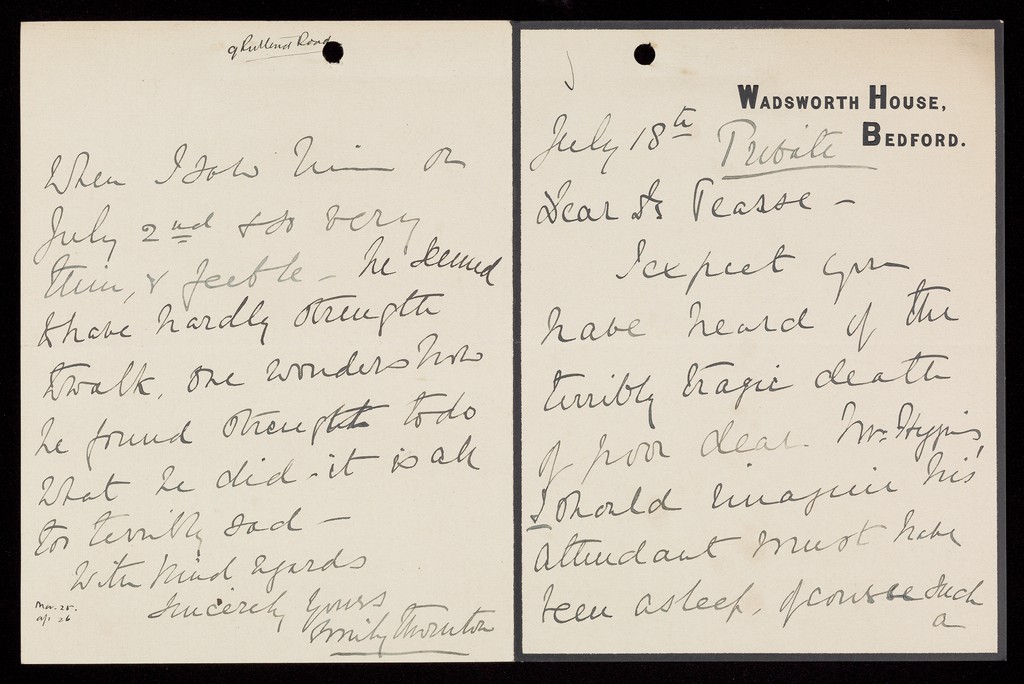 WADSWORTH HOUSE,
BEDFORD.
July 18th
Private
Dear Dr Pearse -
I expect you
have heard of the
terribly tragic death
of poor dear Mr. Higgins,
I should imagine his
attendant must have
been asleep, of course such
a
9 Rutland Road
When I saw him on
July 2nd & so very
thin, & feeble - he seemed
to have hardly strength
to walk, one wonders how
he found strength to do
what he did - it is all
too terribly sad -
With kind regards
Sincerely yours
Emily Thornton